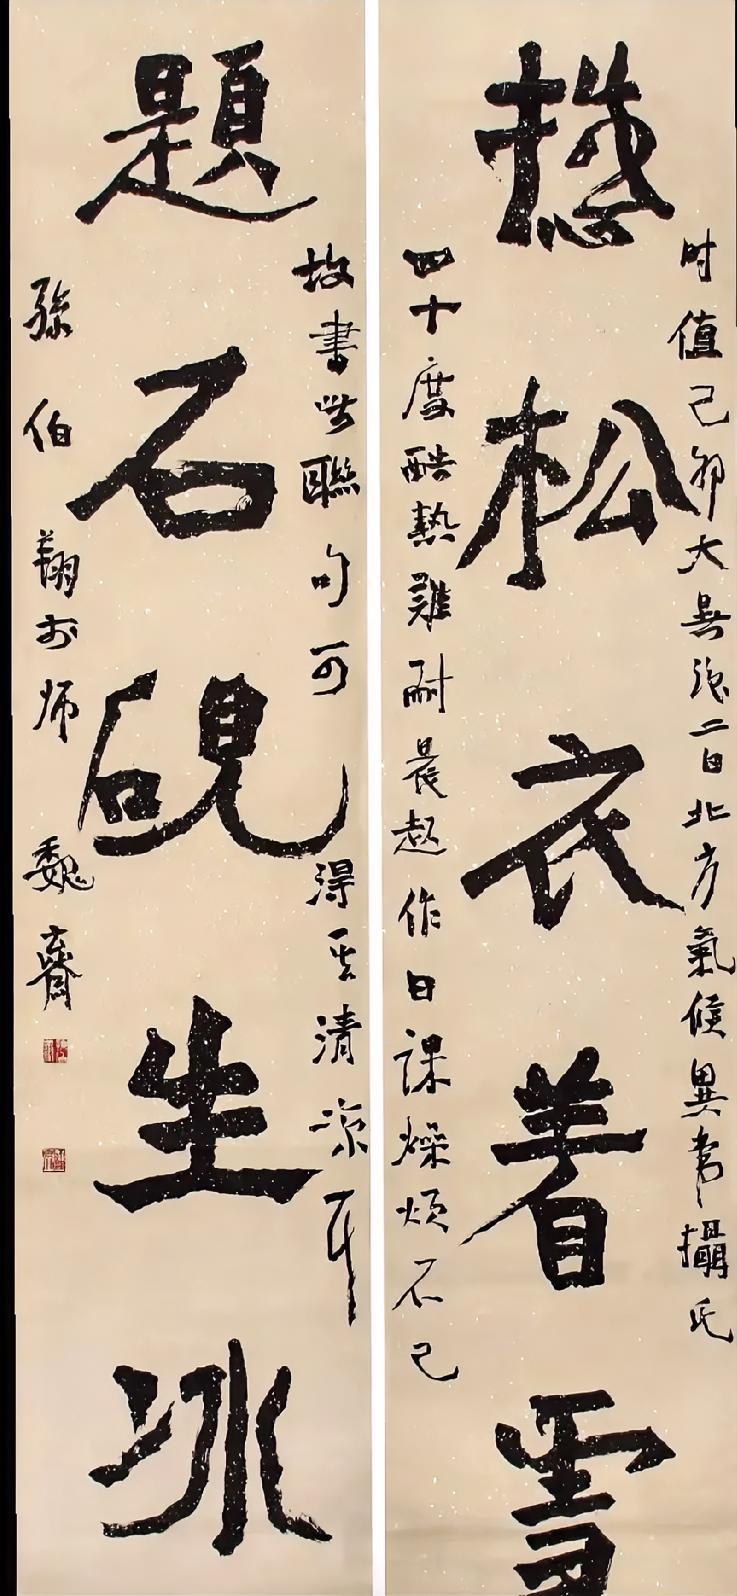 憩松衣着雪
时值己卯大暑後二日北方氣候異常攝氏
四十度酷熱難耐晨起作日課燥煩不已
題石硯生冰
故書此聯句可得其清凉耳
孫伯翔於师魏齋